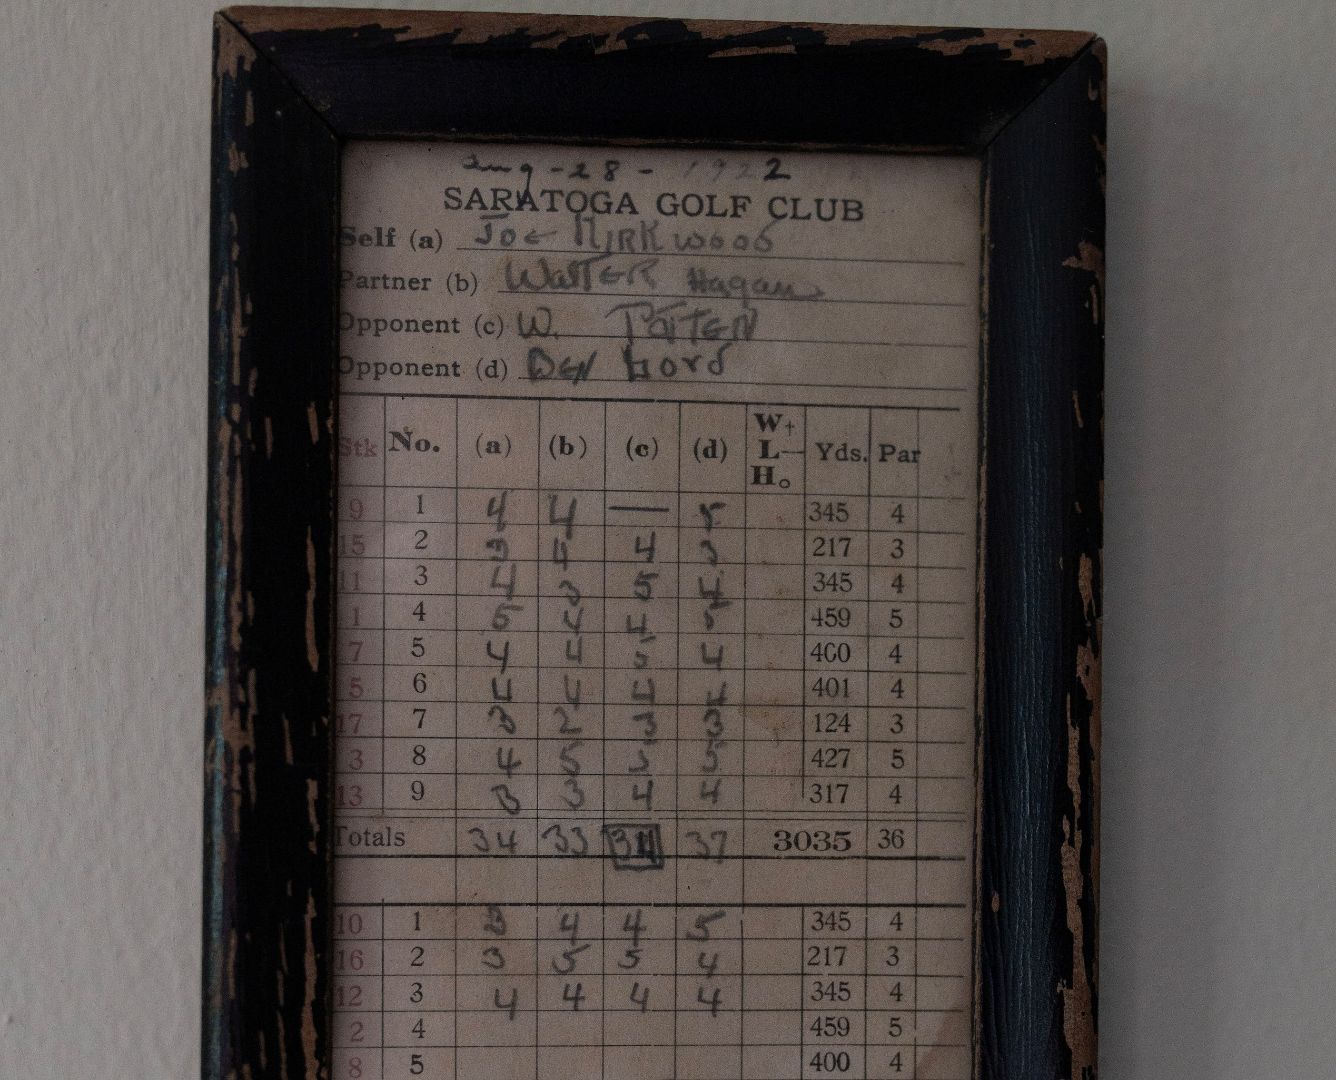 Aug-28-1922
SARATOGA GOLF CLUB
Self (a) Joe Kirkwood
Partner (b) Walter Hagan
Opponent (c) W.
Opponent (d)
Stk No. (a) (b) (c) (d) W+ L— Ho Yds. Par
9 1 4 4 — 5 345 4
15 2 3 4 4 3 217 3
11 3 4 3 5 4 345 4
1 4 5 4 4 5 459 5
7 5 4 4 5 4 400 4
5 6 4 4 4 4 401 4
17 7 3 2 3 3 124 3
3 8 4 5 5 5 427 5
13 9 3 3 4 4 317 4
Totals 34 33 34 37 3035 36
10 1 3 4 4 5 345 4
16 2 3 5 5 4 217 3
12 3 4 4 4 4 345 4
2 4 459 5
8 5 400 4